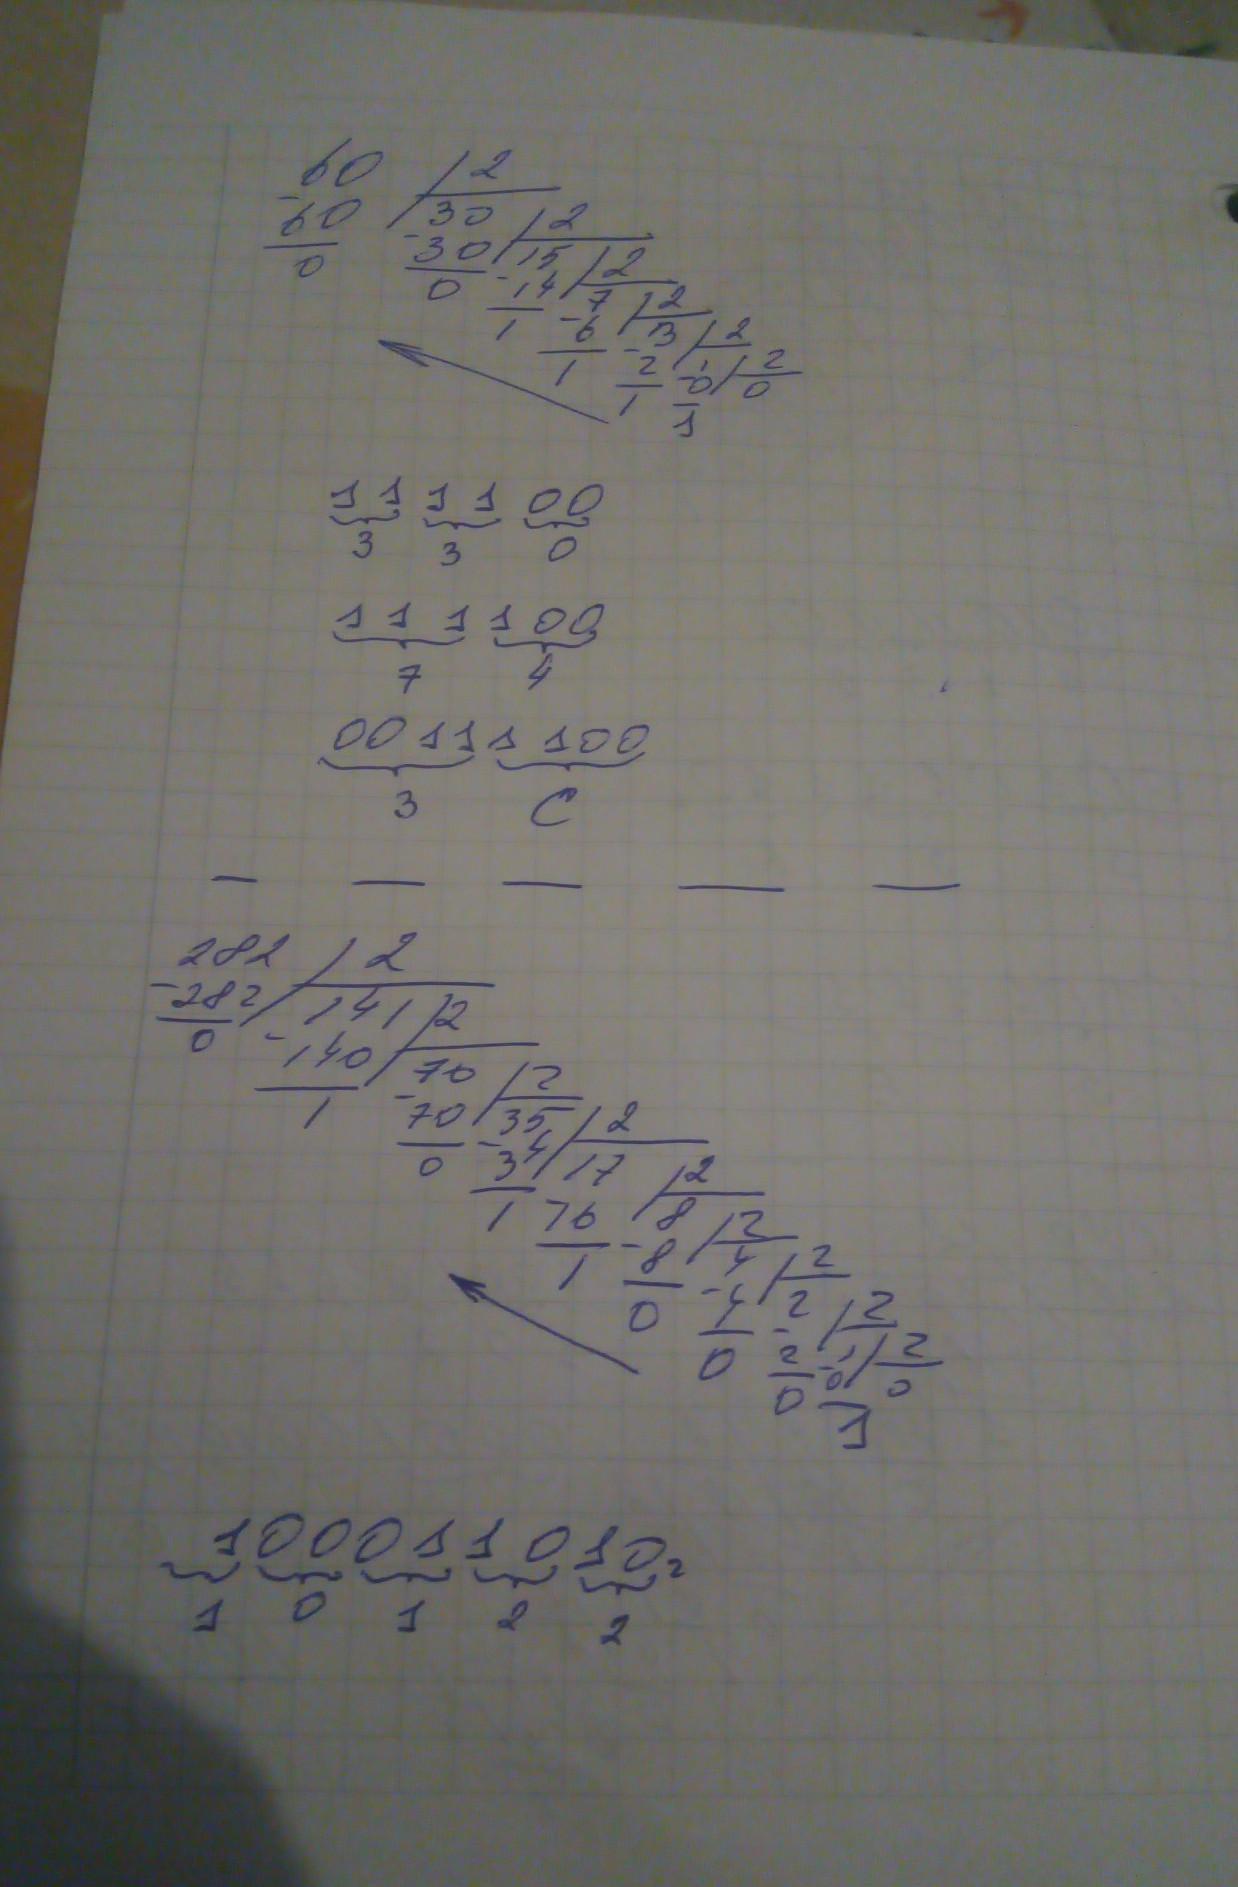 60 | 2
-60 30 | 2
0 -30 15 | 2
0 -14 7 | 2
1 -6 3 | 2
1 -2 1 | 2
1 -0 0
1
11 11 00
3 3 0
111 100
7 4
0011 1100
3 C
— — — — —
282 | 2
-282 141 | 2
0 -140 70 | 2
1 -70 35 | 2
0 -34 17 | 2
1 16 8 | 2
1 -8 4 | 2
0 -4 2 | 2
0 -2 1 | 2
0 -0 0
1
100011010₂
1 0 1 2 2